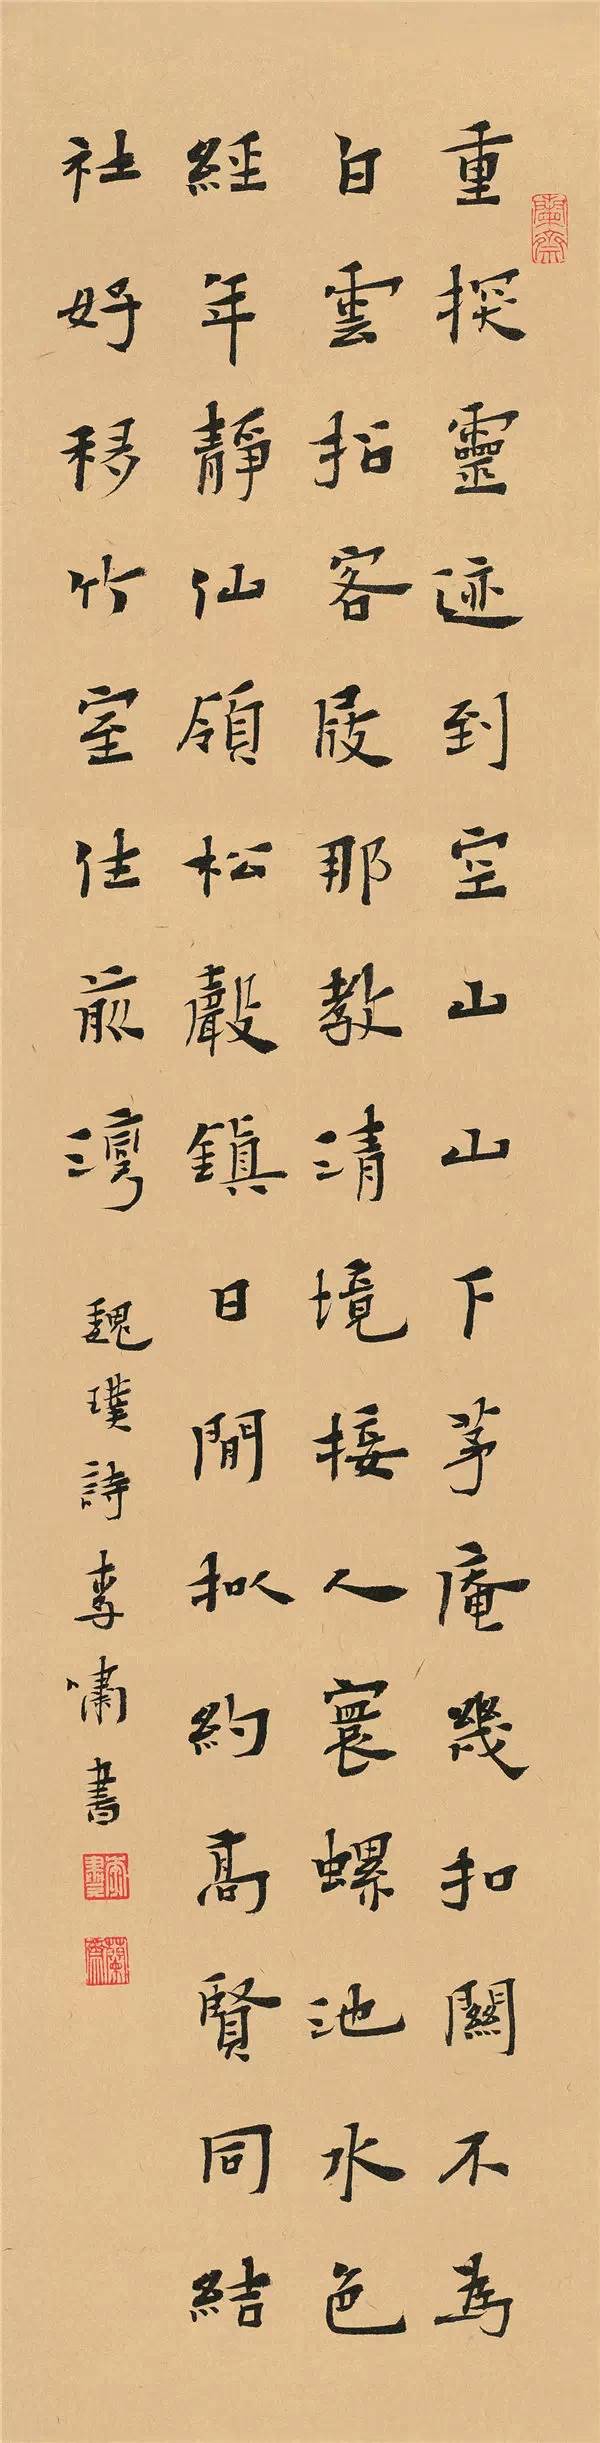 重探靈迹到空山山下茅庵幾扣關不為
白雲招客屐那教清境接人寰螺池水色
經年靜仙嶺松聲鎮日閒拟約高賢同結
社好移竹室住前灣 魏璞詩李嘯書